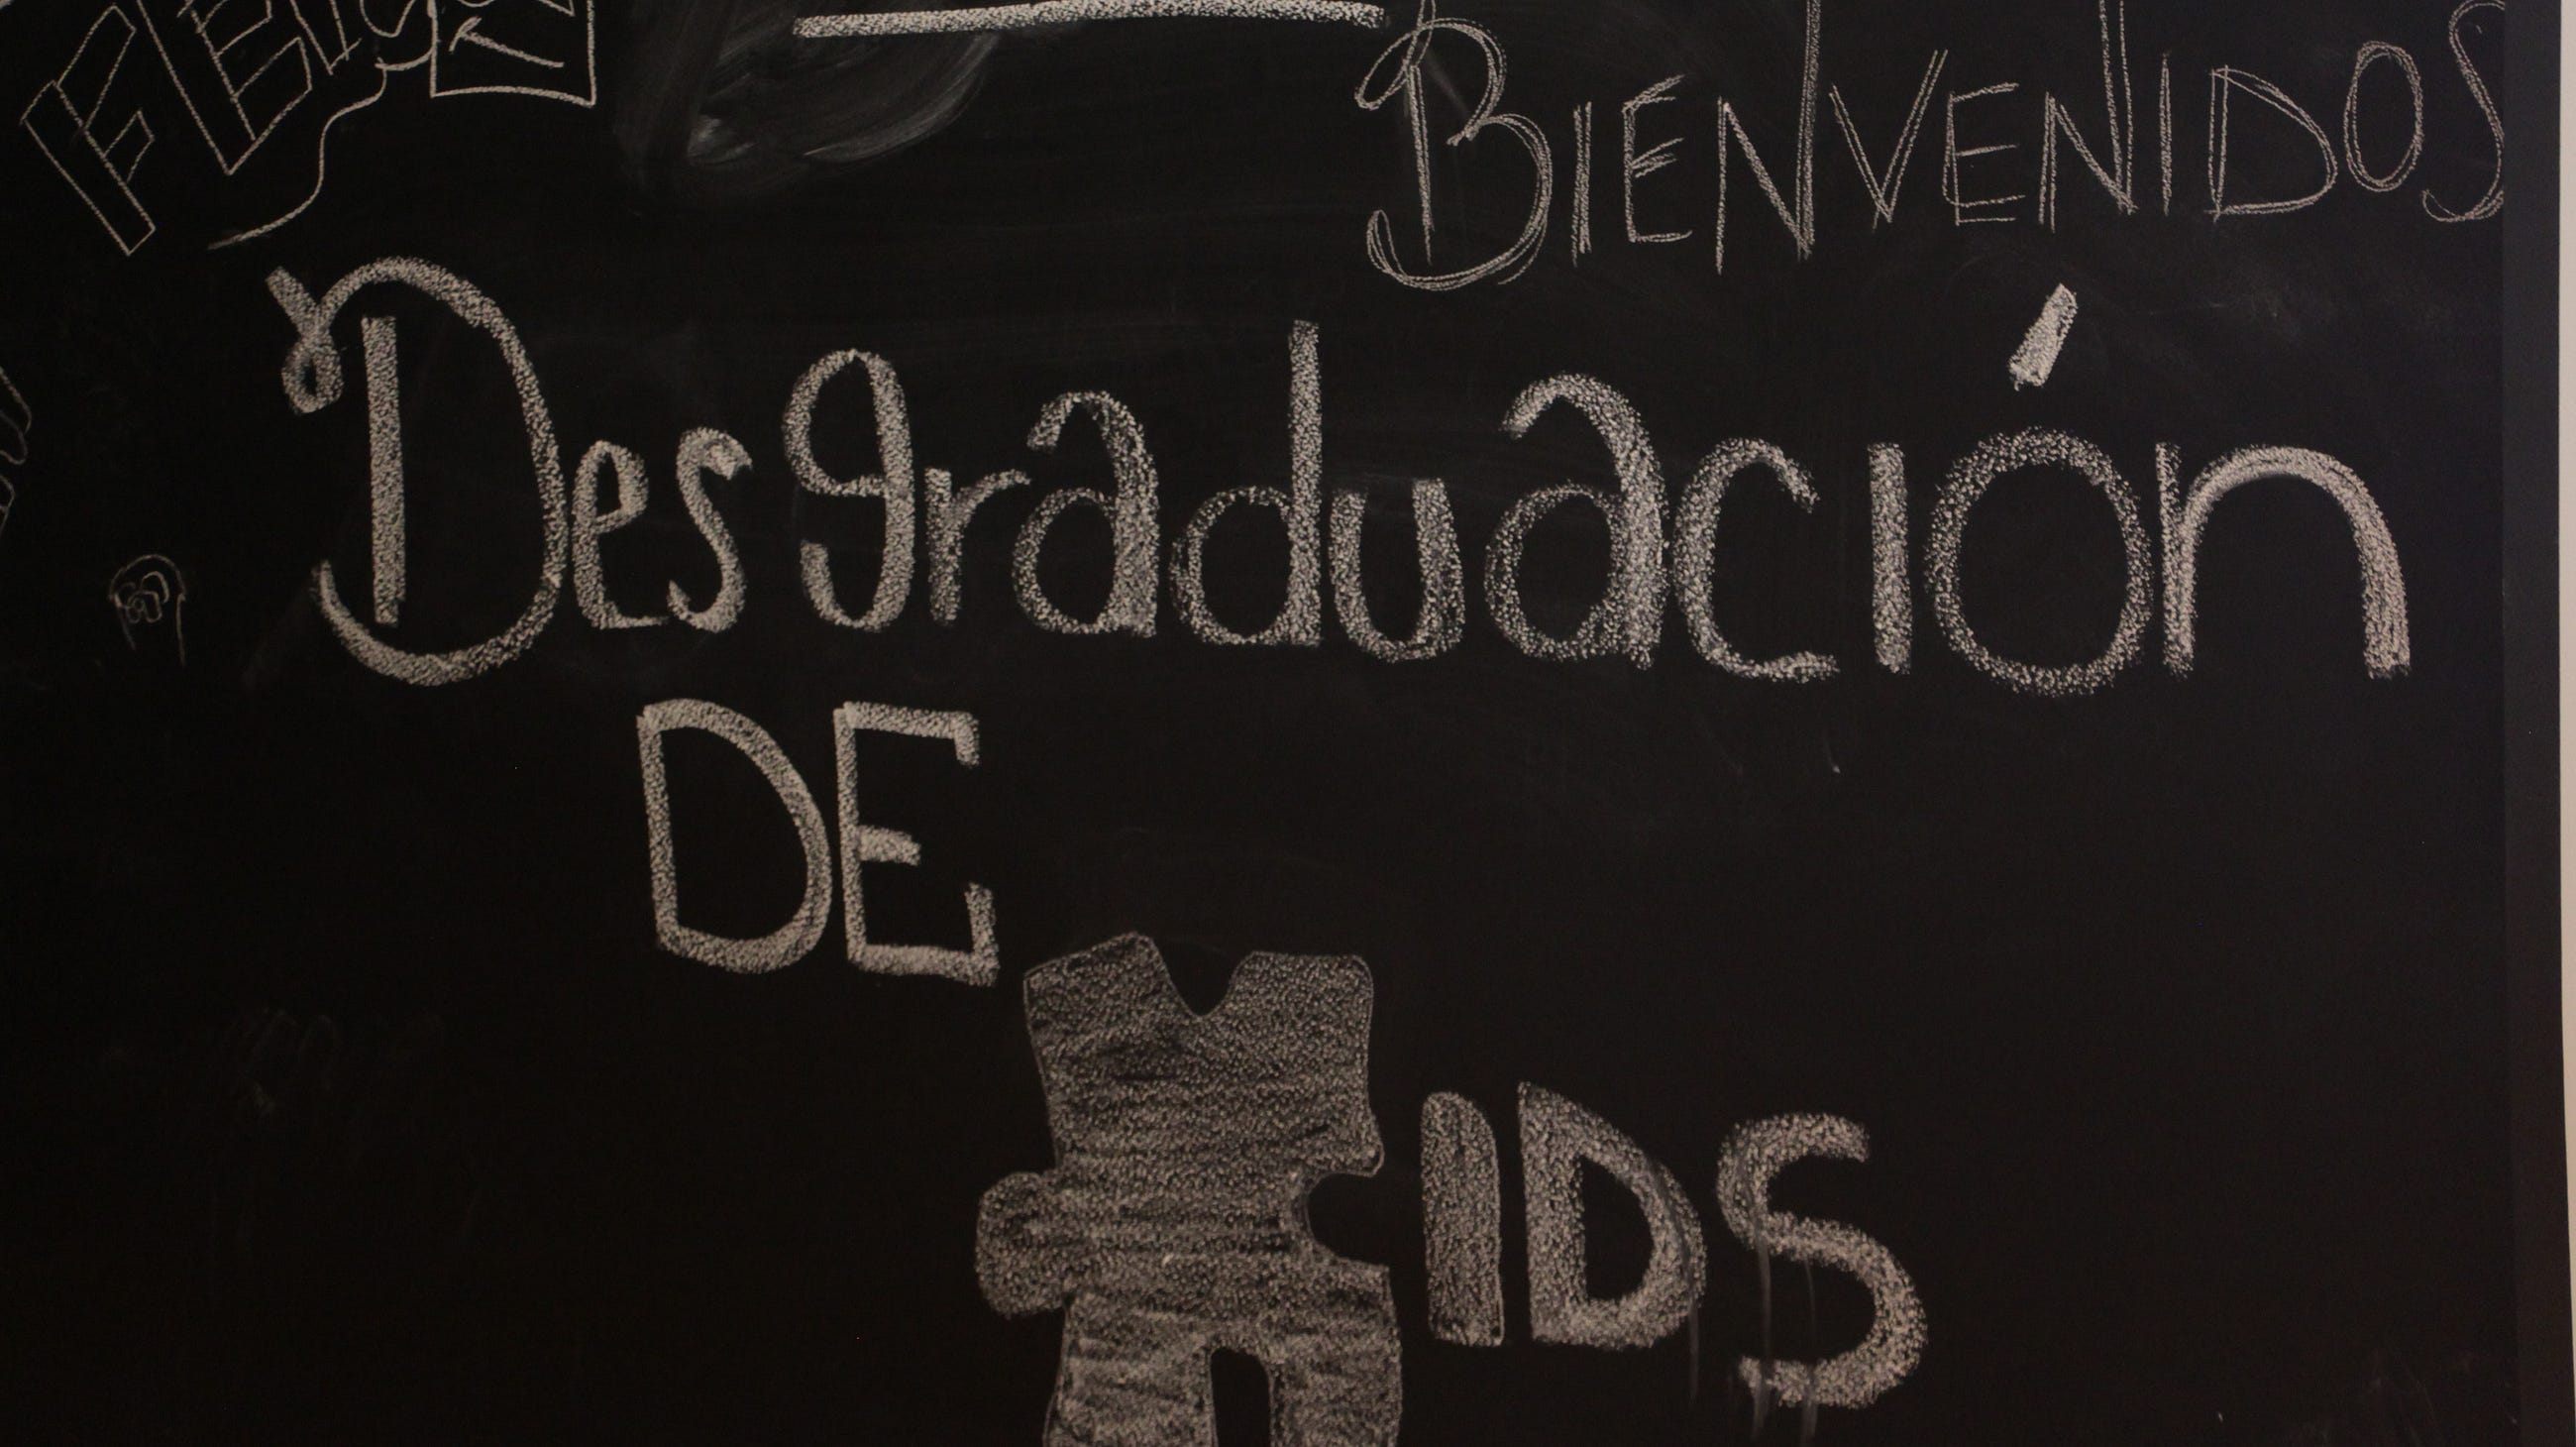 BIENVENIDOS
Desgraduación
DE
KIDS